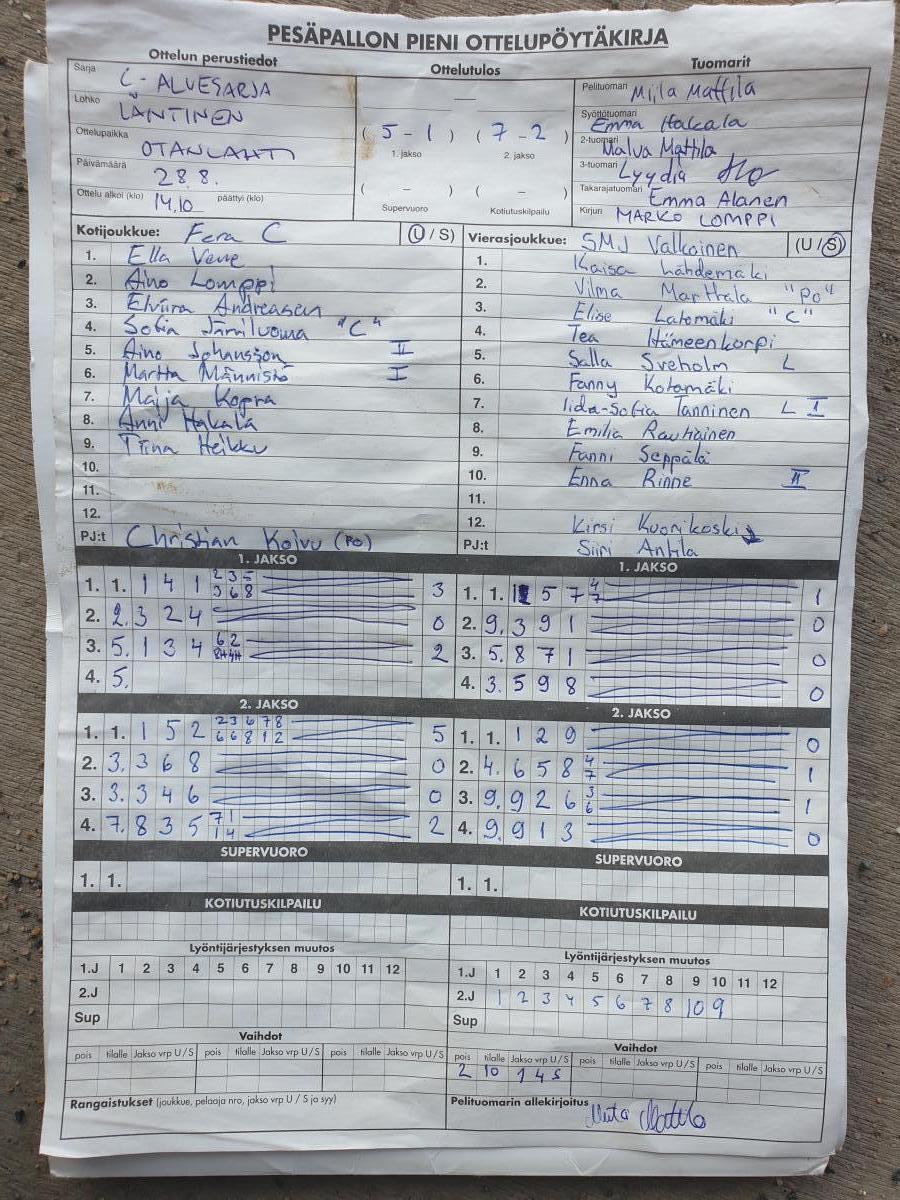 PESÄPALLON PIENI OTTELUPÖYTÄKIRJA
Ottelun perustiedot
Ottelutulos
Tuomarit
Sarja C-ALUESARJA
Lohko LÄNTINEN
Ottelupaikka OTANLAHTI
Päivämäärä 28.8.
Ottelu alkoi (klo) 14.10 päättyi (klo)
—
( 5 - 1 ) ( 7 - 2 )
1. jakso 2. jakso
( - ) ( - )
Supervuoro Kotiutuskilpailu
Pelituomari Miila Mattila
Syöttötuomari Emma Hakala
2-tuomari Malva Mattila
3-tuomari Lyydia
Takarajatuomari Emma Alanen
Kirjuri MARKO LOMPPI
Kotijoukkue: Fera C (U / S)
1. Ella Verve
2. Aino Lomppi
3. Elviira Andreasen
4. Sofia Järviluoma "C"
5. Aino Johansson II
6. Martta Männistö I
7. Maija Kopra
8. Anni Hakala
9. Tiina Heikku
10.
11.
12.
PJ:t Christian Koivu (PO)
Vierasjoukkue: SMJ Valkoinen (U / S)
1. Kaisa Lähdemäki
2. Vilma Marttala "Po"
3. Elise Latomäki "C"
4. Tea Hämeenkorpi
5. Salla Sveholm L
6. Fanny Kotomäki
7. Iida-Sofia Tanninen L I
8. Emilia Rautiainen
9. Fanni Seppälä
10. Enna Rinne II
11.
12. Kirsi Kuorikoski
PJ:t Siiri Antila
1. JAKSO
1. 1. 1 4 1 2 3 5 3
3 6 8
2. 2. 3 2 4 0
3. 5. 1 3 4 6 2 2
8H 4H
4. 5.
1. JAKSO
1. 1. 1 5 7 4 1
7
2. 9. 3 9 1 0
3. 5. 8 7 1 0
4. 3. 5 9 8 0
2. JAKSO
1. 1. 1 5 2 2 3 6 7 8 5
6 6 8 1 2
2. 3. 3 6 8 0
3. 3. 3 4 6 0
4. 7. 8 3 5 7 1 2
1 4
2. JAKSO
1. 1. 1 2 9 0
2. 4. 6 5 8 4 1
7
3. 9. 9 2 6 3 1
6
4. 9. 9 1 3 0
SUPERVUORO
1. 1.
SUPERVUORO
1. 1.
KOTIUTUSKILPAILU
KOTIUTUSKILPAILU
Lyöntijärjestyksen muutos
1.J 1 2 3 4 5 6 7 8 9 10 11 12
2.J
Sup
Lyöntijärjestyksen muutos
1.J 1 2 3 4 5 6 7 8 9 10 11 12
2.J 1 2 3 4 5 6 7 8 10 9
Sup
Vaihdot
pois tilalle Jakso vrp U / S pois tilalle Jakso vrp U / S pois tilalle Jakso vrp U / S
Vaihdot
pois tilalle Jakso vrp U / S pois tilalle Jakso vrp U / S pois tilalle Jakso vrp U / S
2 10 1 4 S
Rangaistukset (joukkue, pelaaja nro, jakso vrp U / S ja syy)
Pelituomarin allekirjoitus